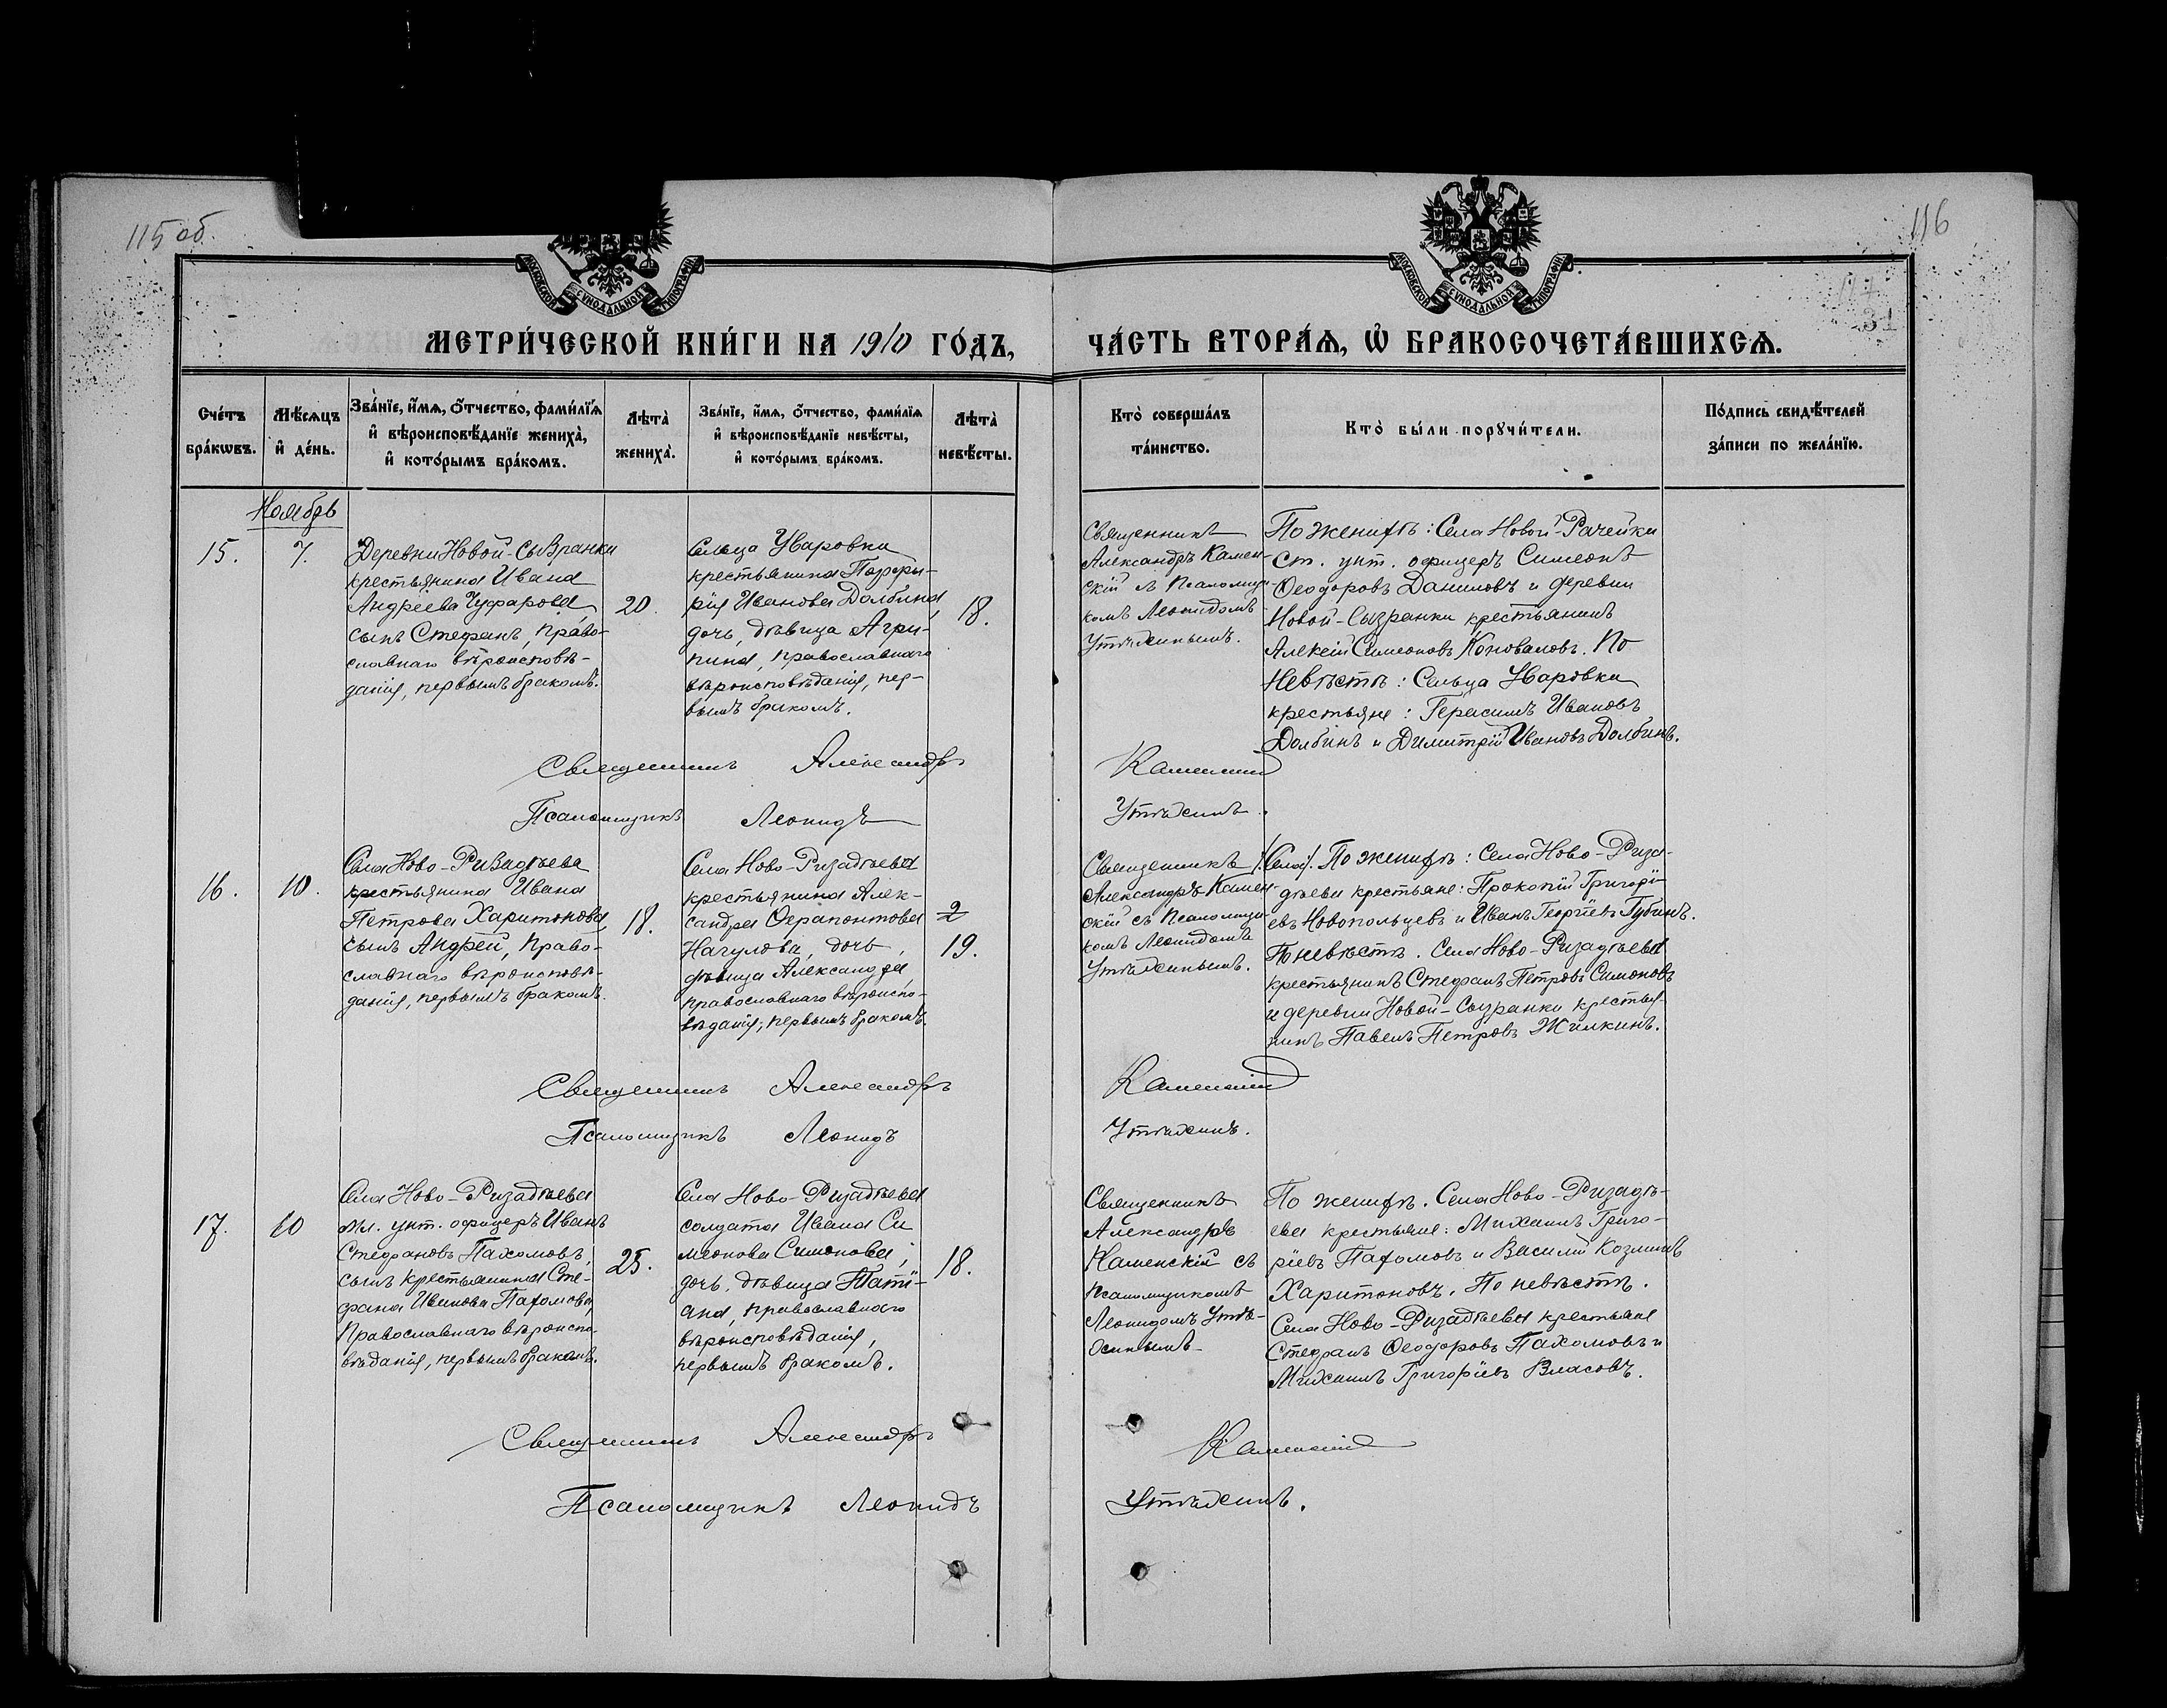 115 об.
116
31
МОСКОВСКОЙ СѴНОДАЛЬНОЙ ТИПОГРАФІИ
МОСКОВСКОЙ СѴНОДАЛЬНОЙ ТИПОГРАФІИ
МЕТРИ́ЧЕСКОЙ КНИ́ГИ НА 1910 ГО́ДЪ,
ЧА́СТЬ ВТОРА́Ѧ, Ѽ БРАКОСОЧЕТА́ВШИХСѦ.
Сче́тъ
бра́кѡвъ.
Мѣ́сяцъ
и҆ де́нь.
Зва́нїе, и҆́мѧ, ѻ҆́тчество, фами́лїѧ
и҆ вѣроисповѣ́данїе жениха̀,
и҆ кото́рымъ бра́комъ.
Лѣта̀
жениха̀.
Зва́нїе, и҆́мѧ, ѻ҆́тчество, фами́лїѧ
и҆ вѣроисповѣ́данїе невѣ́сты,
и҆ кото́рымъ бра́комъ.
Лѣта̀
невѣ́сты.
Кто̀ соверша́лъ
та́инство.
Кто̀ бы́ли порꙋчи́тели.
По́дпись свидѣ́телей
за́писи по жела́нїю.
Ноябрь
15.
7.
Деревни Новой-Сызранки
крестьянина Ивана
Андреева Чуфарова
сынъ Стефанъ, право-
славнаго вѣроисповѣ-
данія, первымъ бракомъ.
20.
Сельца Уваровки
крестьянина Порфи-
рія Иванова Долбина,
дочь, дѣвица Агри-
пина, православнаго
вѣроисповѣданія, пер-
вымъ бракомъ.
18.
Священникъ
Александръ Камен-
скій съ Псаломщи-
комъ Леонидомъ
Утѣхинымъ.
По женихѣ: Села Новой-Рачейки
ст. унт. офицеръ Симеонъ
Ѳеодоровъ Даниловъ и деревни
Новой-Сызранки крестьянинъ
Алексій Симеоновъ Коноваловъ. По
невѣстѣ: Сельца Уваровки
крестьяне: Герасимъ Ивановъ
Долбинъ и Димитрій Ивановъ Долбинъ.
Священникъ Александръ Каменскій
Псаломщикъ Леонидъ Утѣхинъ.
16.
10.
Села Ново-Ризадѣева
крестьянина Ивана
Петрова Харитонова
сынъ Андрей, право-
славнаго вѣроисповѣ-
данія, первымъ бракомъ.
18.
Села Ново-Ризадѣева
крестьянина Алек-
сандра Ѳерапонтова
Нагулова, дочь,
дѣвица Александра
православнаго вѣроиспо-
вѣданія, первымъ бракомъ.
2
19.
Священникъ
Александръ Камен-
скій съ Псаломщи-
комъ Леонидомъ
Утѣхинымъ.
/Села/. По женихѣ: Села Ново-Риза-
дѣева крестьяне: Прокопій Григорі-
евъ Новопольцевъ и Иванъ Георгіевъ Губинъ.
По невѣстѣ. Села Ново-Ризадѣева
крестьянинъ Стефанъ Петровъ Симоновъ
и деревни Новой-Сызранки крестья-
нинъ Павелъ Петровъ Жилкинъ.
Священникъ Александръ Каменскій
Псаломщикъ Леонидъ Утѣхинъ.
17.
10
Села Ново-Ризадѣева
мл. унт. офицеръ Иванъ
Стефановъ Пахомовъ,
сынъ крестьянина Сте-
фана Иванова Пахомова
Православнаго вѣроиспо-
вѣданія, первымъ бракомъ.
25.
Села Ново-Ризадѣева
солдата Ивана Си
меонова Симонова,
дочь, дѣвица Таті-
ана, православнаго
вѣроисповѣданія,
первымъ бракомъ.
18.
Священникъ
Александръ
Каменскій съ
псаломщикомъ
Леонидомъ Утѣ-
хинымъ
По женихѣ. Села Ново-Ризадѣ-
ева крестьяне: Михаилъ Григо-
ріевъ Пахомовъ и Василій Козминъ
Харитоновъ. По невѣстѣ.
Села Ново-Ризадѣева крестьяне
Стефанъ Ѳеодоровъ Пахомовъ и
Михаилъ Григоріевъ Власовъ.
Священникъ Александръ Каменскій
Псаломщикъ Леонидъ Утѣхинъ.